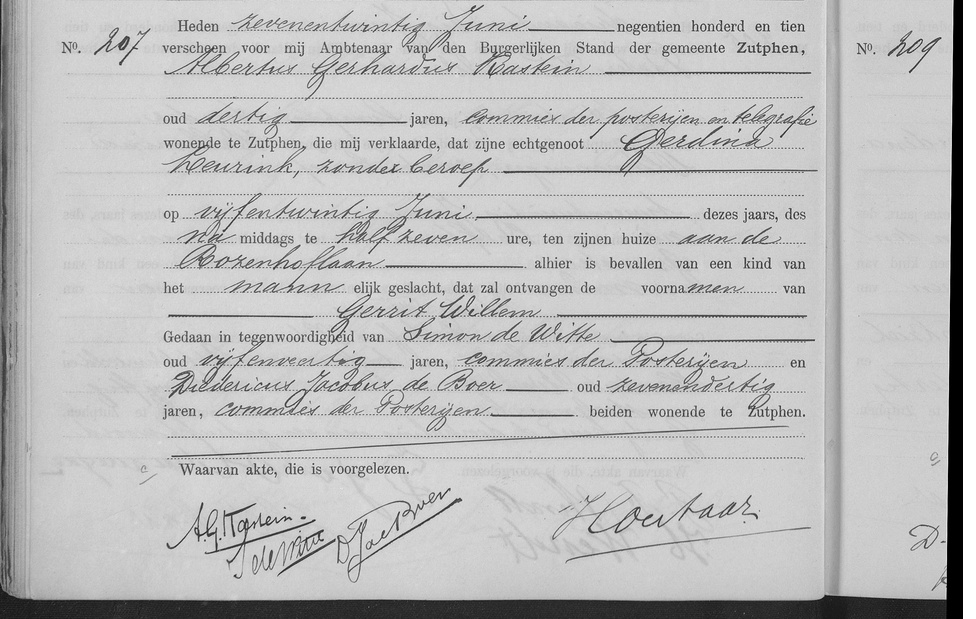 Heden zevenentwintig Juni negentien honderd en tien
No. 207 verscheen voor mij Ambtenaar van den Burgerlijken Stand der gemeente Zutphen,
Albertus Gerhardus Kastein
oud dertig jaren, commies der posterijen en telegrafie
wonende te Zutphen, die mij verklaarde, dat zijne echtgenoot Gerdina
Heurink, zonder beroep
op vijfentwintig Juni dezes jaars, des
na middags te half zeven ure, ten zijnen huize aan de
Rozenhoflaan alhier is bevallen van een kind van
het mann elijk geslacht, dat zal ontvangen de voornamen van
Gerrit Willem
Gedaan in tegenwoordigheid van Simon de Witte
oud vijfenveertig jaren, commies der Posterijen en
Diedericus Jacobus de Boer oud zevenendertig
jaren, commies der Posterijen beiden wonende te Zutphen.
Waarvan akte, die is voorgelezen.
A.G. Kastein.
S de Witte
D. Jac Boer
No. 209